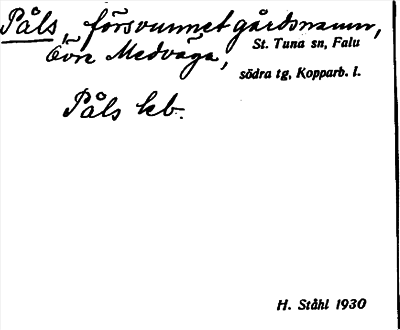 Påls, försvunnet gårdsnamn,
Övre Medväga, St. Tuna sn, Falu
södra tg, Kopparb. l.
Påls kb.
H. Ståhl 1930